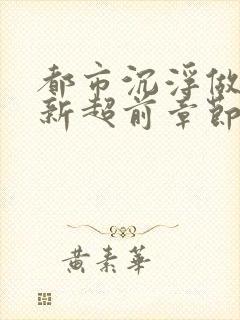 都市沉浮做
新超前章節
黄素華